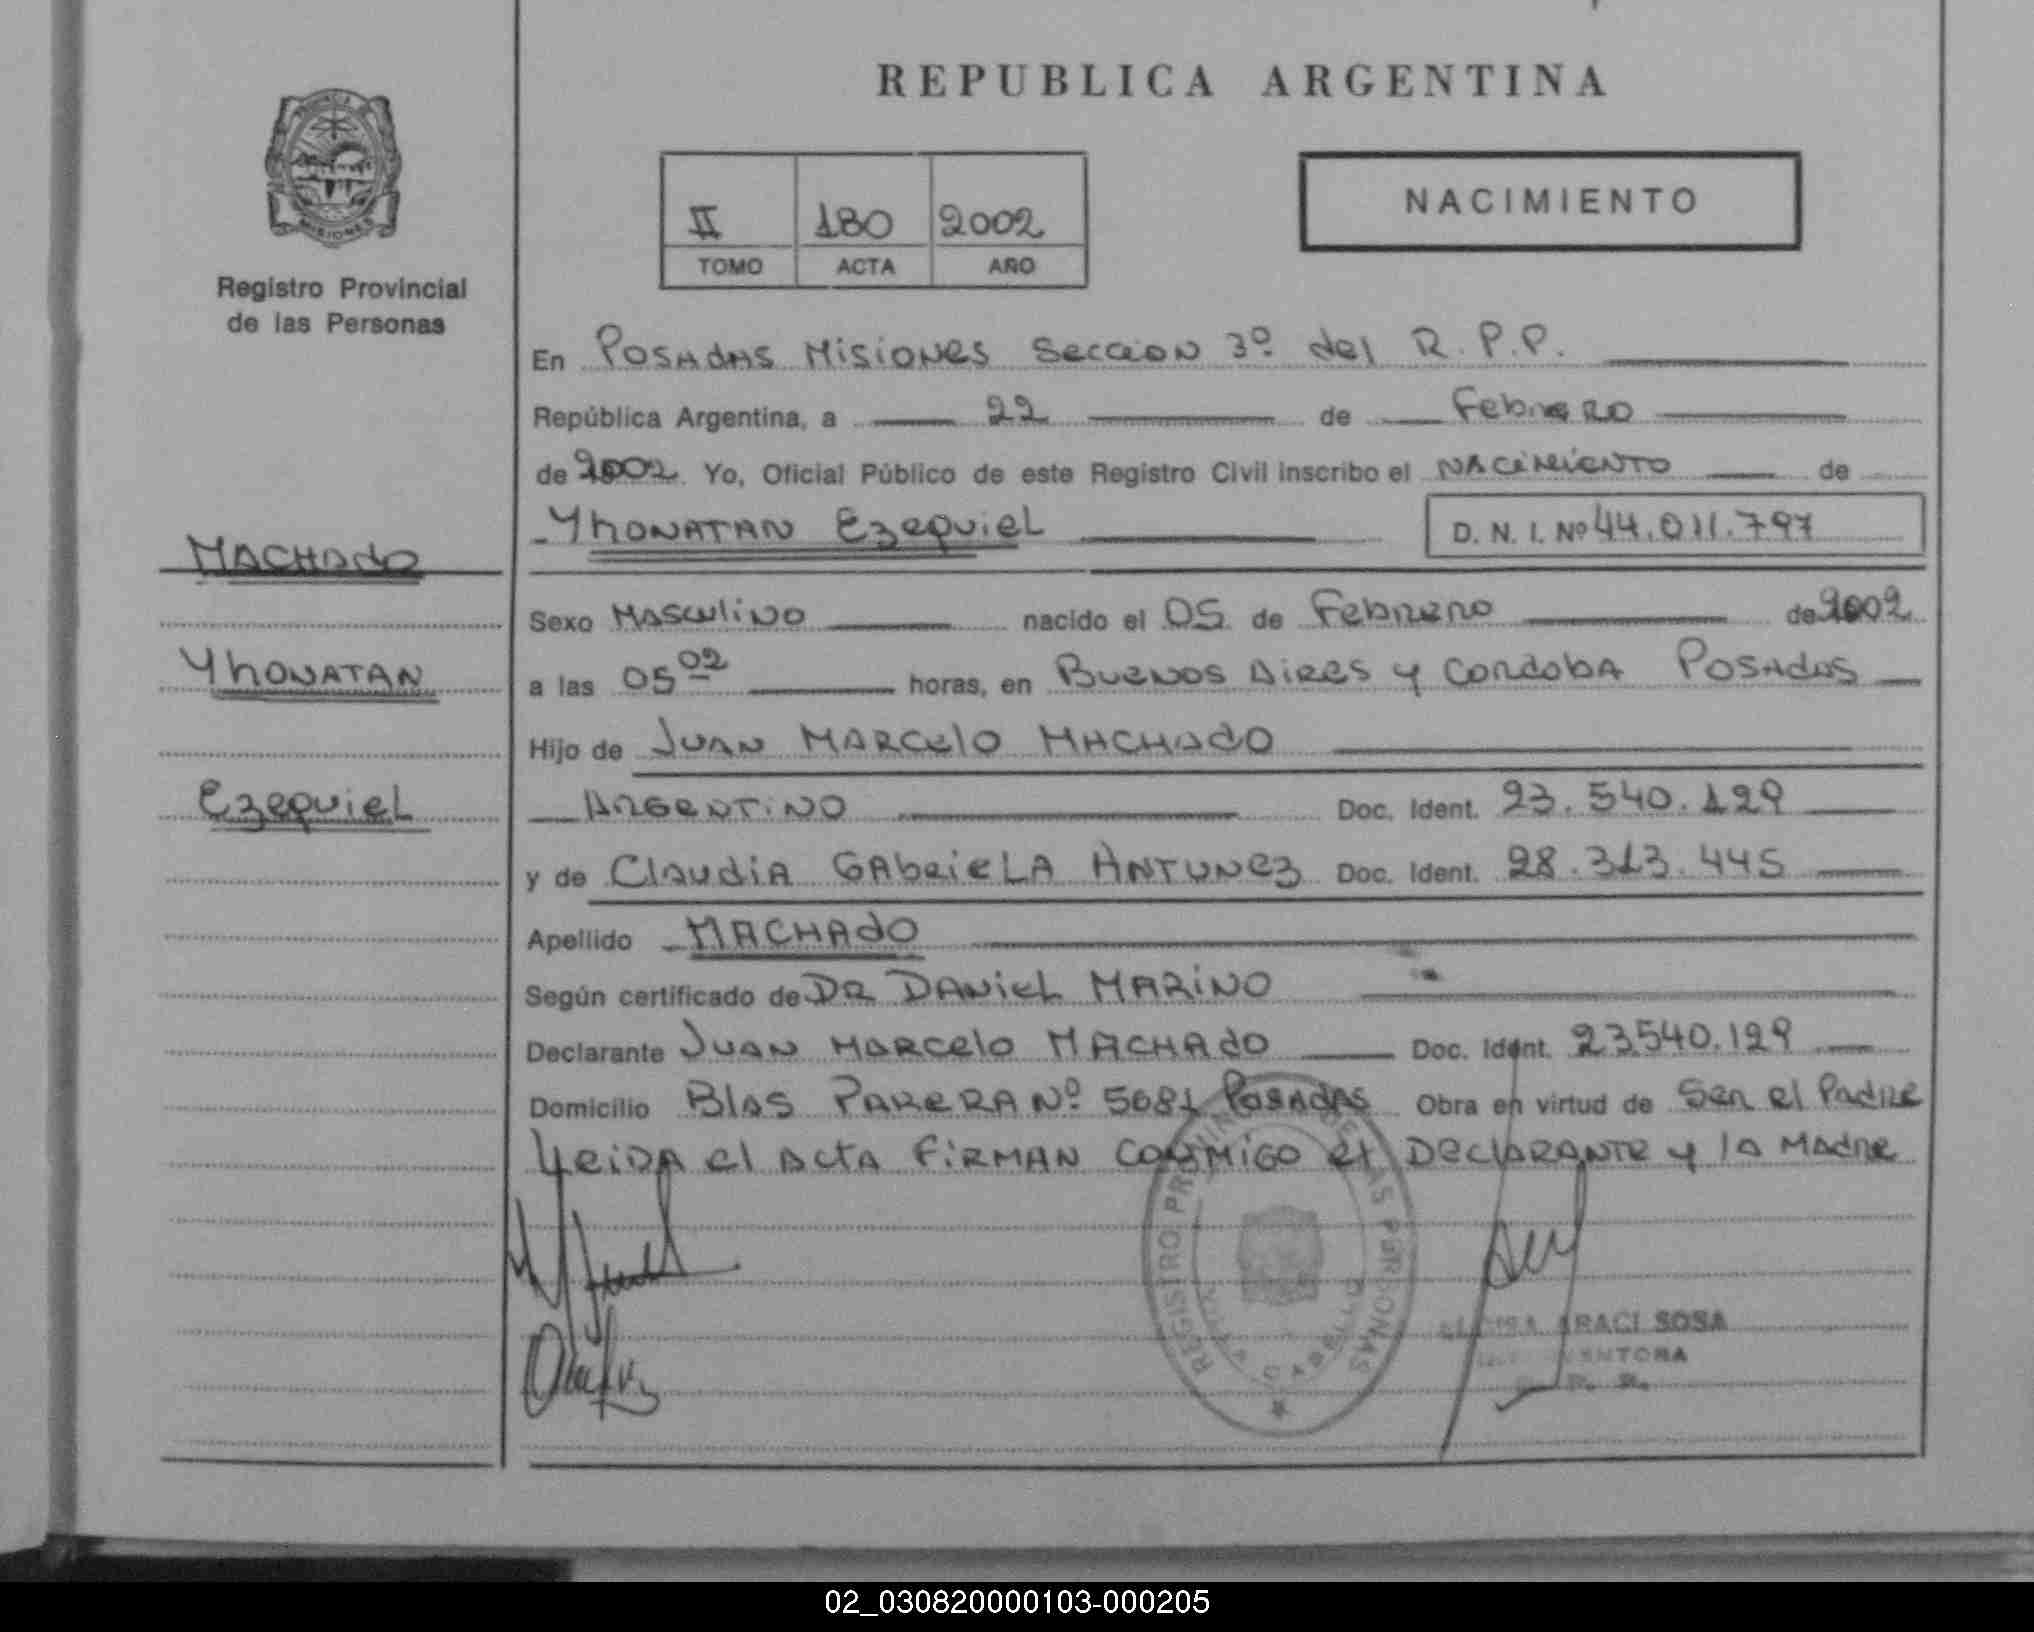 REPUBLICA ARGENTINA
MISIONES
Registro Provincial
de las Personas
II 180 2002
TOMO ACTA AÑO
NACIMIENTO
En POSADAS MISIONES Seccion 3º del R.P.P.
República Argentina, a 22 de Febrero
de 2002. Yo, Oficial Público de este Registro Civil inscribo el NACIMIENTO de
YhONATAN EzequieL D. N. I. Nº 44.011.797
MACHAdo
Sexo MAsculiNO nacido el 05 de Febrero de 2002
YhONATAN
a las 05 02 horas, en BUENOS AIRES y CORdobA POSAdas
Hijo de JUAN MARCelO MACHAdO
EzequieL
ARGENTINO Doc. Ident. 23.540.129
y de ClaudiA GAbrieLA ANTUNez Doc. Ident. 28.313.445
Apellido MACHAdO
Según certificado de DR DANieL MARiNO
Declarante JUAN MARCelo MACHAdO Doc. Ident. 23540.129
Domicilio BlAS PARERA Nº 5681 POSADAS Obra en virtud de Ser el Padre
LeiDA el ActA FiRMAN CONMIGO el DeclARANTE y lA MAdre
REGISTRO PROVINCIAL DE LAS PERSONAS
SOSA
R. P. P.
02_030820000103-000205